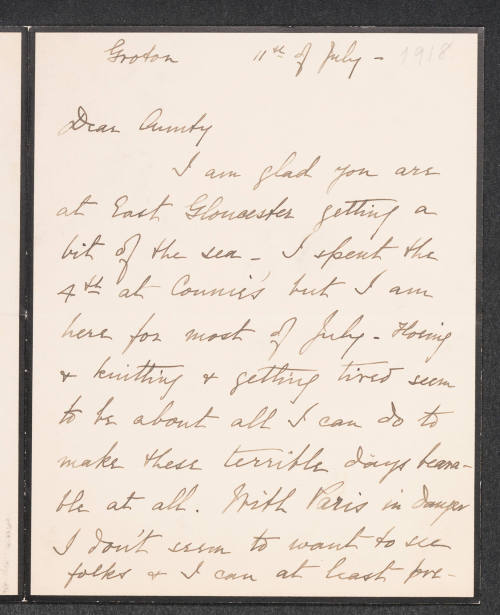 Groton 11th of July - 1918
Dear Aunty
I am glad you are
at East Gloucester getting a
bit of the sea - I spent the
4th at Connie's but I am
here for most of July - Hoeing
& knitting & getting tired seem
to be about all I can do to
make these terrible days beara-
ble at all. With Paris in danger
I don't seem to want to see
folks & I can at least pre-